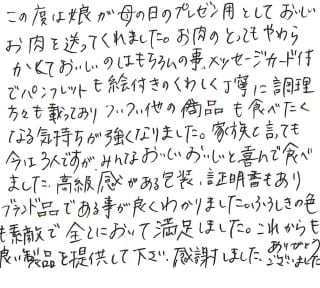 この度は娘が母の日のプレゼン用としておいしい
お肉を送ってくれました。お肉のとってもやわら
かくておいしいのはもちろんの事、メッセージカード付
でパンフレットも絵付きのくわしく丁寧に調理
方々も載っており ついつい他の商品も食べたく
なる気持ちが強くなりました。家族と言っても
今は3人ですが、みんなおいしいおいしいと喜んで食べ
ました。高級感がある包装、証明書もあり
ブランド品である事が良くわかりました。ふろしきの色
も素敵で全てにおいて満足しました。これからも
良い製品を提供して下さい。感謝しました。ありがとう
ございました